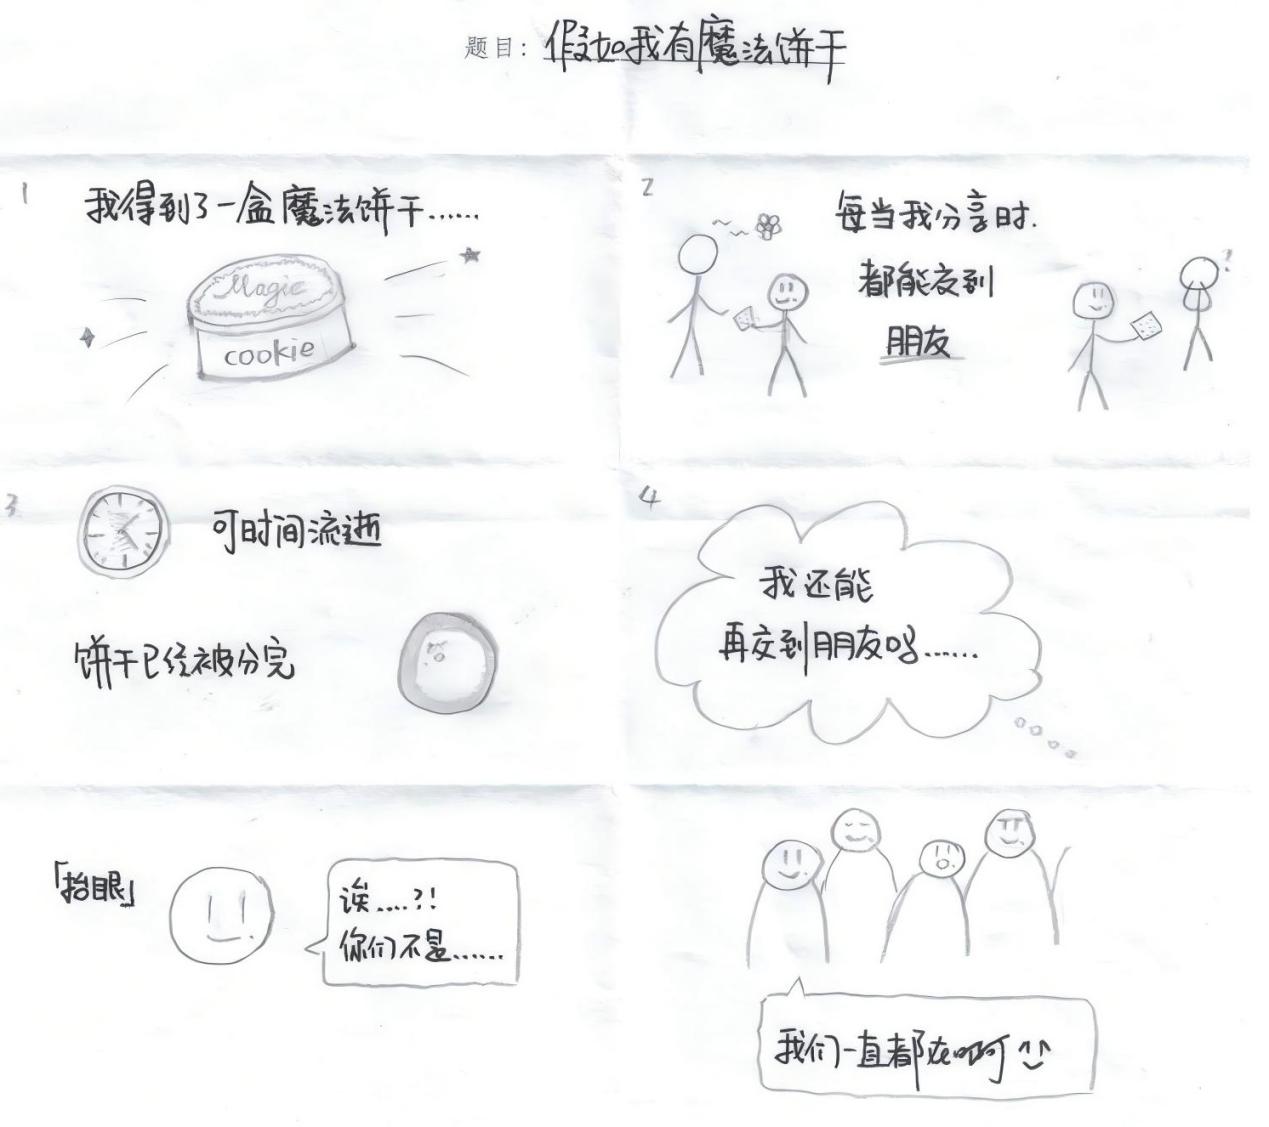 题目：假如我有魔法饼干
1
我得到了一盒魔法饼干……
Magic
cookie
2
每当我分享时.
都能交到
朋友
3
可时间流逝
饼干已经被分完
4
我还能
再交到朋友吗……
「抬眼」
诶....?!
你们不是……
我们一直都在啊